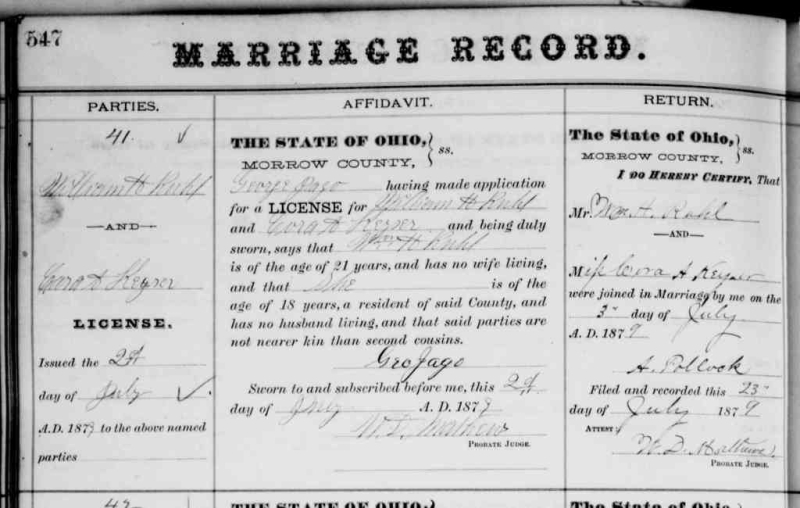 547
MARRIAGE RECORD.
PARTIES.
41. ✓
William H Ruhl
—AND—
Cora A Keyser
LICENSE.
Issued the 2d
day of July ✓
A.D. 1879 to the above named
parties
AFFIDAVIT.
THE STATE OF OHIO,
MORROW COUNTY, } ss.
George Jago having made application
for a LICENSE for William H Ruhl
and Cora A Keyser and being duly
sworn, says that Wm H Ruhl
is of the age of 21 years, and has no wife living,
and that She is of the
age of 18 years, a resident of said County, and
has no husband living, and that said parties are
not nearer kin than second cousins.
Geo Jago
Sworn to and subscribed before me, this 2d
day of July A. D. 1879
W. D. Mathews
PROBATE JUDGE.
RETURN.
The State of Ohio,
MORROW COUNTY, } ss.
I DO HEREBY CERTIFY, That
Mr. Wm H. Ruhl
—AND—
Miss Cora A Keyser
were joined in Marriage by me on the
3" day of July
A. D. 1879
A. Pollock
Filed and recorded this 23"
day of July 1879
ATTEST:
W. D. Mathews.
PROBATE JUDGE.
42
THE STATE OF OHIO,
The State of Ohio,